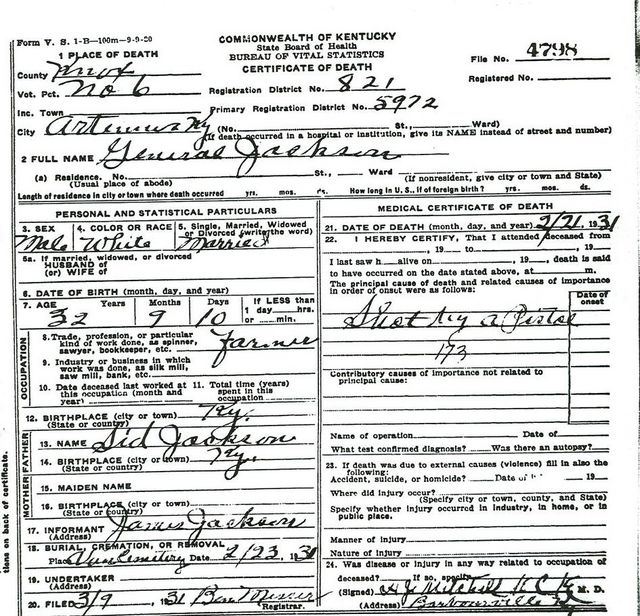 Form V. S. 1-B—100m—9-9-20
COMMONWEALTH OF KENTUCKY
State Board of Health
BUREAU OF VITAL STATISTICS
CERTIFICATE OF DEATH
File No. 4798
Registered No.
1 PLACE OF DEATH
County Knox
Vot. Pct. No 6
Registration District No. 821
Inc. Town
Primary Registration District No. 5972
City Artemus Ky (No. St., Ward)
(If death occurred in a hospital or institution, give its NAME instead of street and number)
2 FULL NAME General Jackson
(a) Residence. No. St., Ward (If nonresident, give city or town and State)
(Usual place of abode)
Length of residence in city or town where death occurred yrs. mos. ds. How long in U. S., if of foreign birth? yrs. mos. ds.
PERSONAL AND STATISTICAL PARTICULARS
3. SEX 4. COLOR OR RACE 5. Single, Married, Widowed
or Divorced (write the word)
Male White Married
5a. If married, widowed, or divorced
HUSBAND of
(or) WIFE of
6. DATE OF BIRTH (month, day, and year)
7. AGE Years Months Days If LESS than
1 day,....hrs.
or ....... min.
32 9 10
OCCUPATION
8. Trade, profession, or particular
kind of work done, as spinner,
sawyer, bookkeeper, etc. Farmer
9. Industry or business in which
work was done, as silk mill,
saw mill, bank, etc.
10. Date deceased last worked at 11. Total time (years)
this occupation (month and spent in this
year) occupation
12. BIRTHPLACE (city or town) Ky.
(State or country)
FATHER
13. NAME Sid Jackson
14. BIRTHPLACE (city or town) Ky.
(State or country)
MOTHER
15. MAIDEN NAME
16. BIRTHPLACE (city or town)
(State or country)
17. INFORMANT James Jackson
(Address)
18. BURIAL, CREMATION, OR REMOVAL
Place Cemetery Date 2/23, 1931
19. UNDERTAKER
(Address)
20. FILED 3/9, 1931
Registrar.
items on back of certificate.
MEDICAL CERTIFICATE OF DEATH
21. DATE OF DEATH (month, day, and year) 2/21, 1931
22. I HEREBY CERTIFY, That I attended deceased from
, 19 to , 19
I last saw h alive on , 19 , death is said
to have occurred on the date stated above, at m.
The principal cause of death and related causes of importance
in order of onset were as follows:
Date of
onset
Shot by a Pistol
173
Contributory causes of importance not related to
principal cause:
Name of operation Date of
What test confirmed diagnosis? Was there an autopsy?
23. If death was due to external causes (violence) fill in also the
following:
Accident, suicide, or homicide? Date of 19
Where did injury occur?
(Specify city or town, county, and State)
Specify whether injury occurred in industry, in home, or in
public place.
Manner of injury
Nature of injury
24. Was disease or injury in any way related to occupation of
deceased? If so, specify
(Signed) Mitchell M. D.
(Address) Barbourville